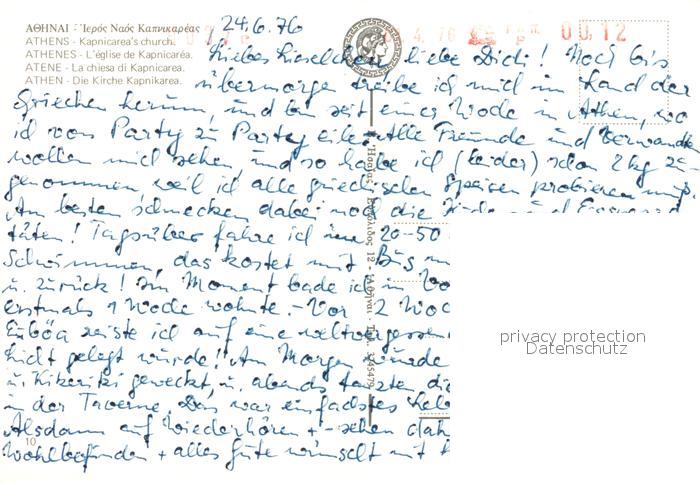 ΑΘΗΝΑΙ - Ἱερός Ναός Καπνικαρέας
ATHENS - Kapnicarea's church.
ATHENES - L'église de Kapnicaréa.
ATENE - La chiesa di Kapnicarea.
ATHEN - Die Kirche Kapnikarea.
24.6.76
00,12
Liebes Lieselchen, liebe Didi! Noch bis
übermorgen treibe ich mich im Land der
Griechen herum, und bin seit einer Woche in Athen, wo
ich von Party zu Party eile. Alle Freunde und Verwandte
wollen mich sehen, und so habe ich (leider) schon 2 kg zu-
genommen, weil ich alle griechischen Speisen probieren muß.
Am besten schmecken dabei noch die
täten! Tagsüber fahre ich im 20-50
Schwimmen, das kostet mit Bus
u. zurück! Im Moment bade ich in
erstmals 1 Woche wohnte. - Vor 2 Woc
Euböa reiste ich auf eine weltvergessen
Licht gelegt wurde! Am Morgen wurde
u. Kikeriki geweckt, u. abends tanzten die
in der Taverne. Das war einfachstes Leb
Alsdann auf Wiederhören + - sehen
Wohlbefinden + alles Gute wünscht mit
12 - Ἀθῆναι - Τηλ.
10
privacy protection
Datenschutz